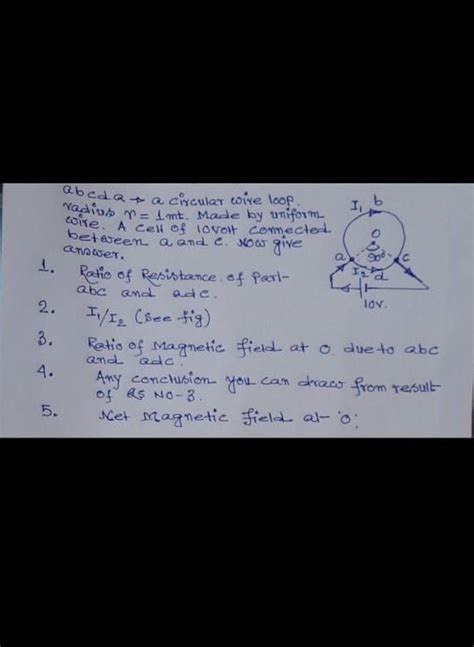 abcda → a circular wire loop.
radius r = 1mt. Made by uniform
wire. A cell of 10volt connected
between a and c. Now give
answer.
1. Ratio of Resistance of Part-
abc and adc.
2. I₁/I₂ (See fig)
3. Ratio of Magnetic field at O due to abc
and adc.
4. Any conclusion you can draw from result
of QS NO-3.
5. Net Magnetic field at 'O'.
I₁ b
O
a 90° c
I₂ d
10V.